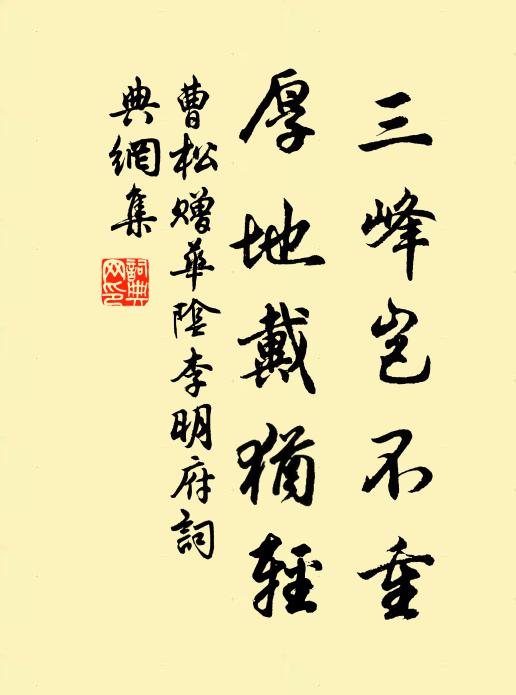 三峰岂不重
厚地戴猶輕
曹松贈華陰李明府詞
典網集
詞典
网印